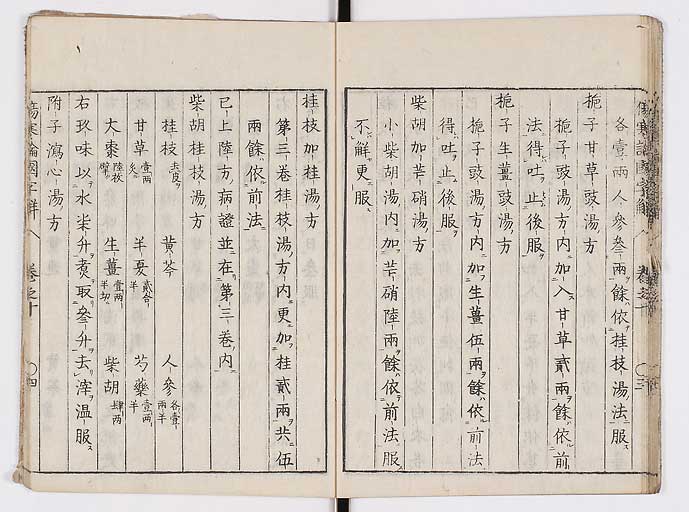 傷寒論國字解 卷之十 ○三
各壹兩人參叁兩餘依桂枝湯法服
梔子甘草豉湯方
梔子豉湯方内加入甘草貳兩餘依前
法得吐止後服
梔子生薑豉湯方
梔子豉湯方内加生薑伍兩餘依前法
得吐止後服
柴胡加芒硝湯方
小柴胡湯内加芒硝陸兩餘依前法服
不解更服
桂枝加桂湯方
第三卷桂枝湯方内更加桂貳兩共伍
兩餘依前法
已上陸方病證並在第三卷内
柴胡桂枝湯方
桂枝去皮 黄芩 人參各壹兩半
甘草壹兩炙 半夏貳合半 芍藥壹兩半
大棗陸枚擘 生薑壹兩半切 柴胡肆兩
右玖味以水柒升煮取叁升去滓温服
附子瀉心湯方
傷寒論國字解 卷之十 ○四